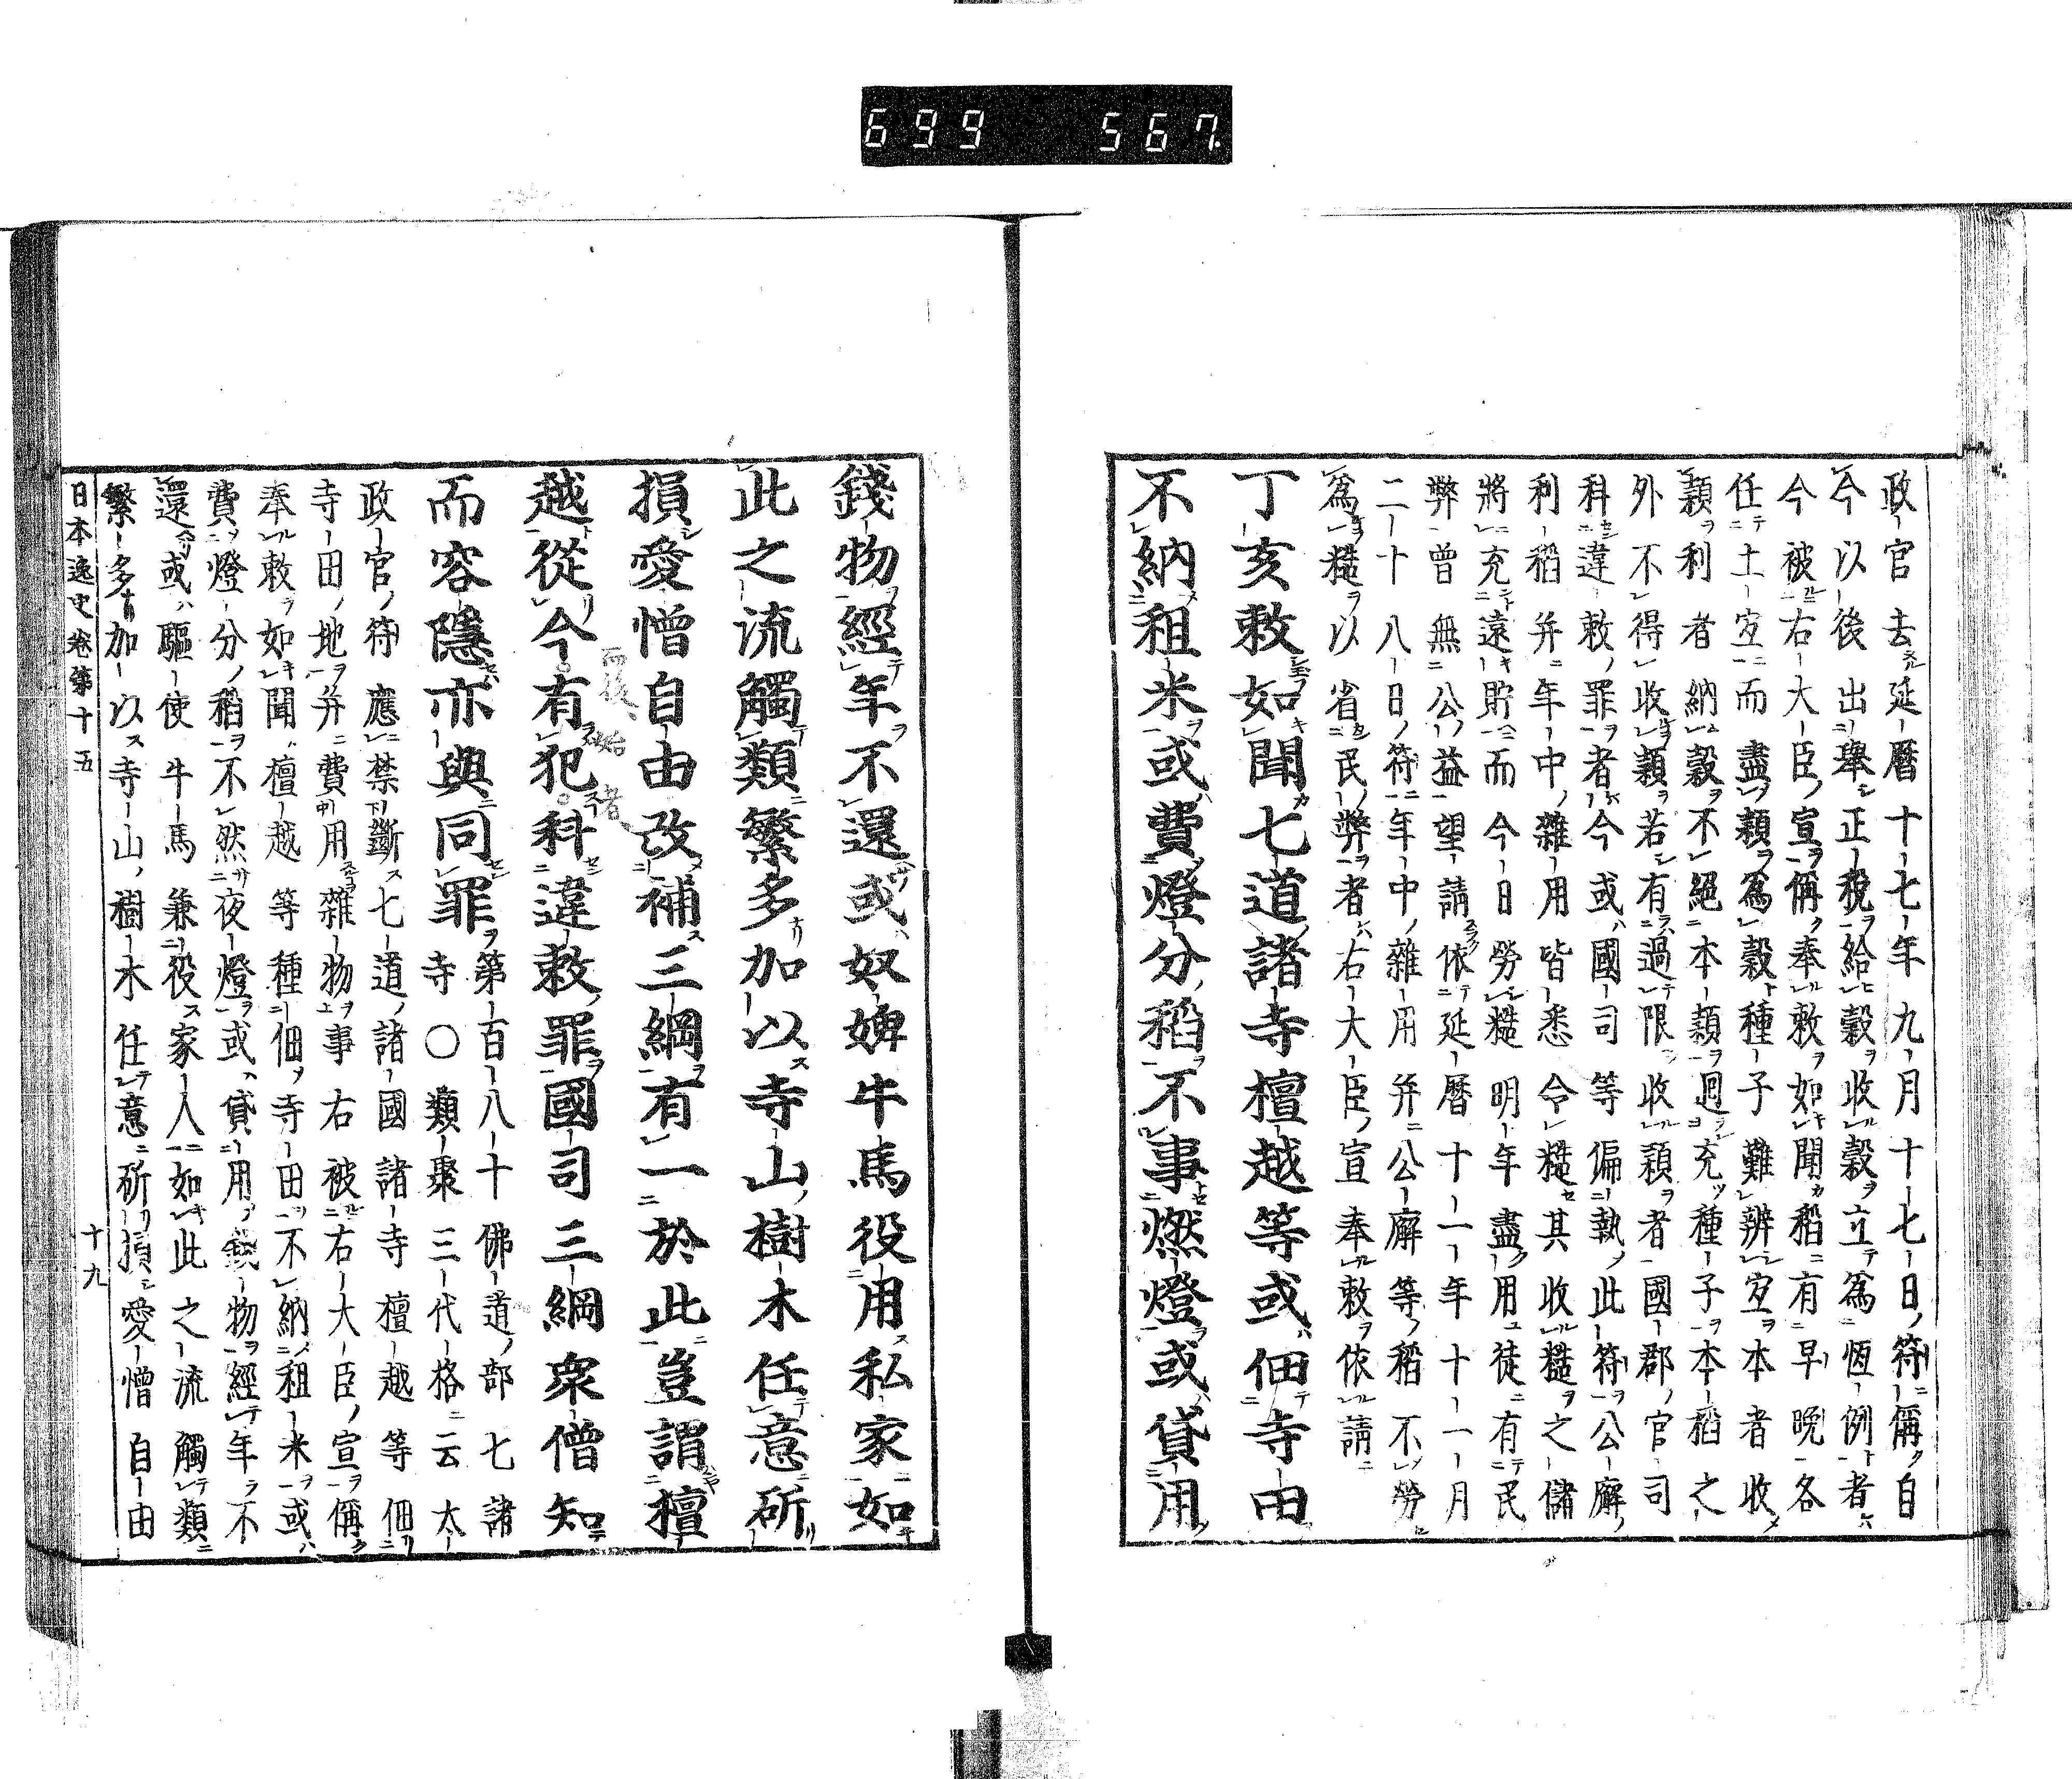 699 567
政官去延曆十七年九月十七日符偁自
今以後出擧正稅給穀收穀立爲恆例者
今被右大臣宣偁奉敕如聞稻有早晚各
任土宜而盡頴爲穀種子難辨宜本者收
頴利者納穀不絕本頴迴充種子本稻之
外不得收頴若有過限收頴者國郡官司
科違敕罪者今或國司等偏執此符公廨
利稻并年中雜用皆悉令糙其收糙之儲
將充遠貯而今日勞糙明年盡用徒有民
弊曾無公益望請依延曆十一年十一月
二十八日符年中雜用并公廨等稻不勞
爲糙以省民弊者右大臣宣奉敕依請
丁亥敕如聞七道諸寺檀越等或佃寺田
不納租米或費燈分稻不事燃燈或貸用
錢物經年不還或奴婢牛馬役用私家如
此之流觸類繁多加以寺山樹木任意斫
損愛憎自由改補三綱有一於此豈謂檀
越從今有犯科違敕罪國司三綱衆僧知
而容隱亦與同罪
第百八十佛道部七諸
寺〇類聚三代格云太
政官符應禁斷七道諸國諸寺檀越等佃
寺田地并費用雜物事右被右大臣宣偁
奉敕如聞檀越等種佃寺田不納租米或
費燈分稻不然夜燈或貸用錢物經年不
還或驅使牛馬兼役家人如此之流觸類
繁多加以寺山樹木任意斫損愛憎自由
日本逸史卷第十五 十九